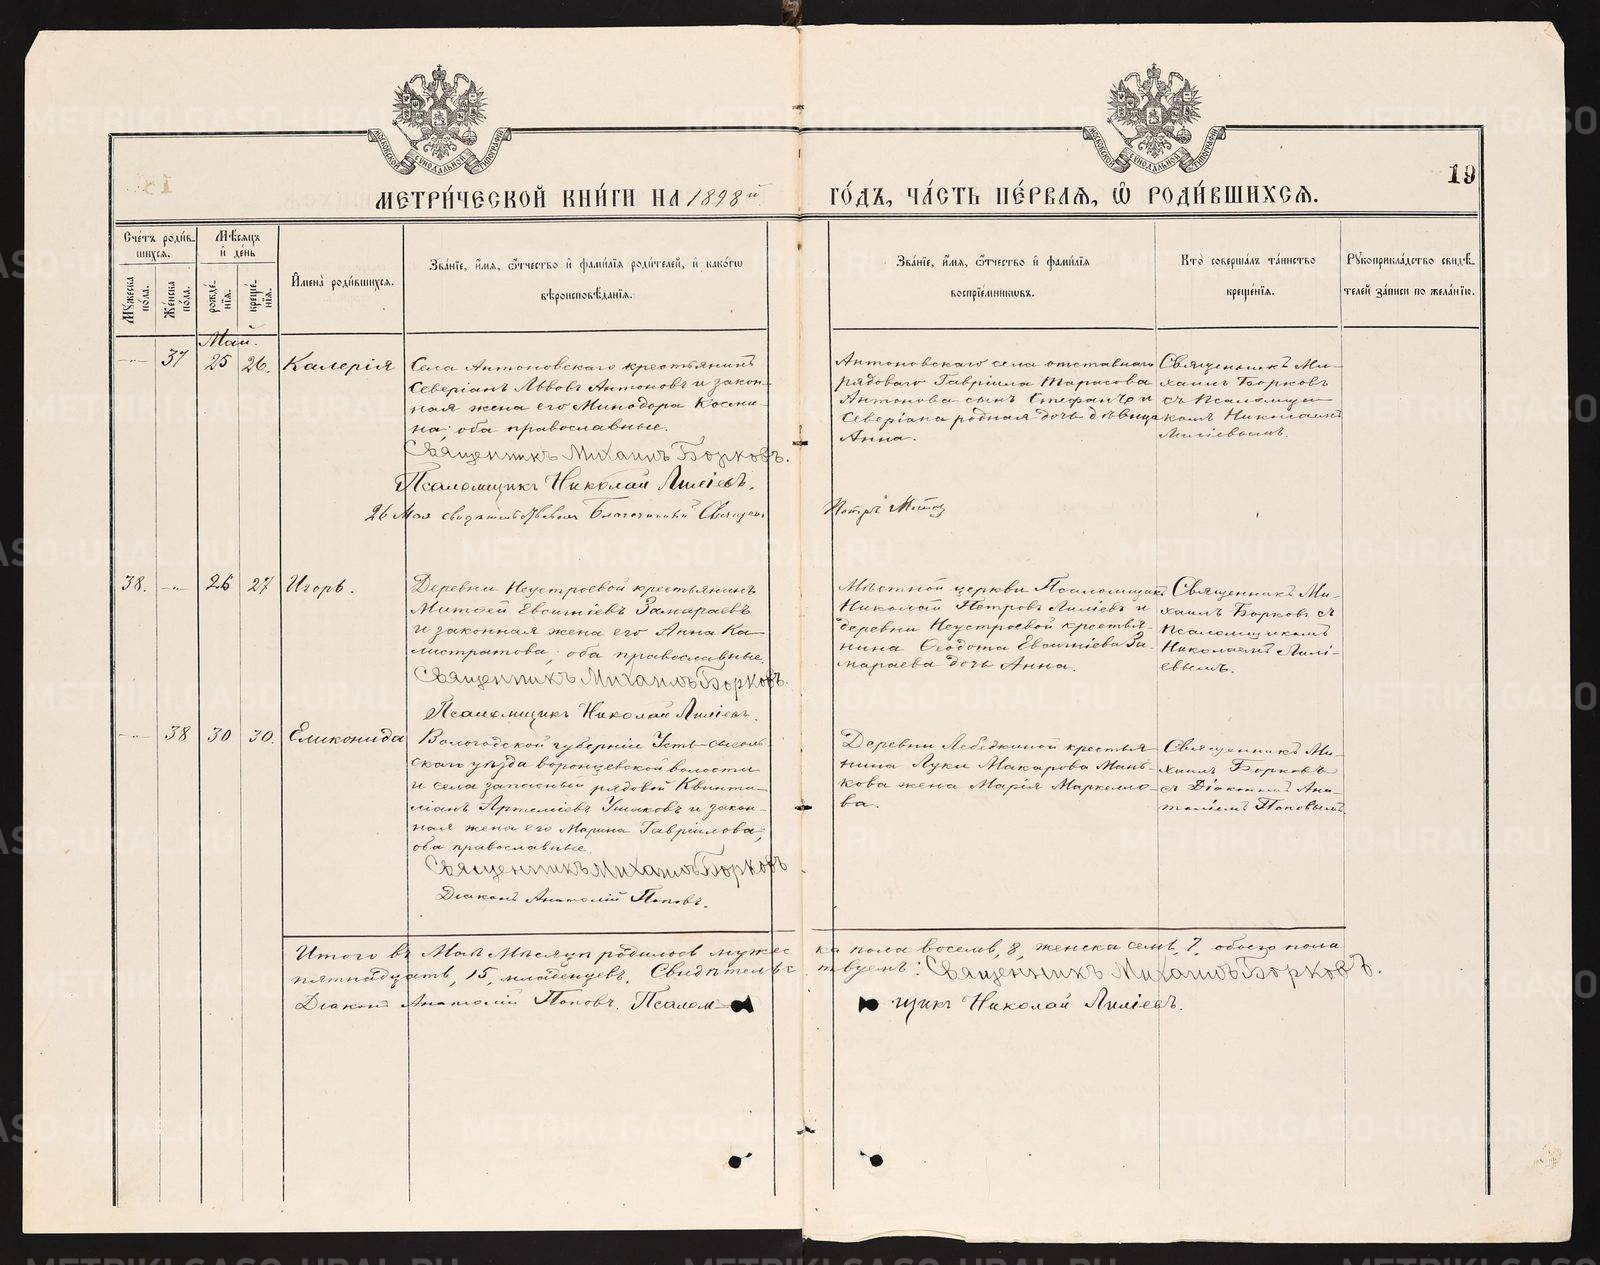 МЕТРИ́ЧЕСКОЙ КНИ́ГИ НА 1898й ГО́ДЪ, ЧА́СТЬ ПЕ́РВАЯ, Ѽ РОДИ́ВШИХСЯ.
19
Сче́тъ роди́в-
шихся.
Му́жеска по́ла.
Же́нска по́ла.
Мѣ́сяцъ и де́нь
рожде́-
нія.
креще́-
нія.
Имена̀ роди́вшихся.
Зва́ніе, и́мя, ѻ́тчество и фами́лія роди́телей, и како́гѡ
вѣроисповѣ́данія.
Зва́ніе, и́мя, ѻ́тчество и фами́лія
воспріе́мниковъ.
Кто̀ соверша́лъ та́инство
креще́нія.
Рꙋкоприкла́дство свидѣ́-
телей за́писи по жела́нію.
Май.
37 25 26. Калерія
Села Антоновскаго крестьянинъ
Северіанъ Львовъ Антоновъ и закон-
ная жена его Минодора Косми-
на; оба православные.
Священникъ Михаилъ Борковъ.
Псаломщикъ Николай Лиліевъ.
26 Мая Благочинный Священ.
Петръ
Антоновскаго села отставнаго
рядоваго Гавріила Тарасова
Антонова сынъ Стефанъ и
Северіана родная дочь дѣвица
Анна.
Священникъ Ми-
хаилъ Борковъ
съ Псаломщи-
комъ Николаемъ
Лиліевымъ.
38. 26 27 Игорь.
Деревни Неустроевой крестьянинъ
Матѳей Евсигніевъ Замараевъ
и законная жена его Анна Ка-
листратова; оба православные.
Священникъ Михаилъ Борковъ.
Псаломщикъ Николай Лиліевъ.
Мѣстной церкви Псаломщикъ
Николай Петровъ Лиліевъ и
деревни Неустроевой крестья-
нина Ѳеодота Евсигніева За-
мараева дочь Анна.
Священникъ Ми-
хаилъ Борковъ съ
Псаломщикомъ
Николаемъ Лилі-
евымъ.
38 30 30. Еликонида
Вологодской губерніи Усть-сысоль-
скаго уѣзда воронцевской волости
и села запасный рядовой Квинти-
ліанъ Артеміевъ Ушаковъ и закон-
ная жена его Марина Гавріилова;
оба православные.
Священникъ Михаилъ Борковъ
Діаконъ Анатолій Поповъ.
Деревни Лебедкиной крестья-
нина Луки Макарова Мань-
кова жена Марія Маркелло-
ва.
Священникъ Ми-
хаилъ Борковъ
съ Діакономъ Ана-
толіемъ Поповымъ.
Итого въ Маѣ Мѣсяцѣ родилось мужес ка пола восемь, 8, женска семь, 7, обоего пола
пятнадцать, 15, младенцевъ. Свидѣтельс твуемъ: Священникъ Михаилъ Борковъ.
Діаконъ Анатолій Поповъ. Псалом- щикъ Николай Лиліевъ.
METRIKI.GASO-URAL.RU